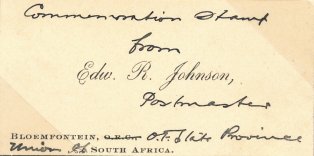 Commemoration Stamp
from
Edw. R. Johnson,
Postmaster
BLOEMFONTEIN, O.R.C. O.F. State Province
Union of SOUTH AFRICA.